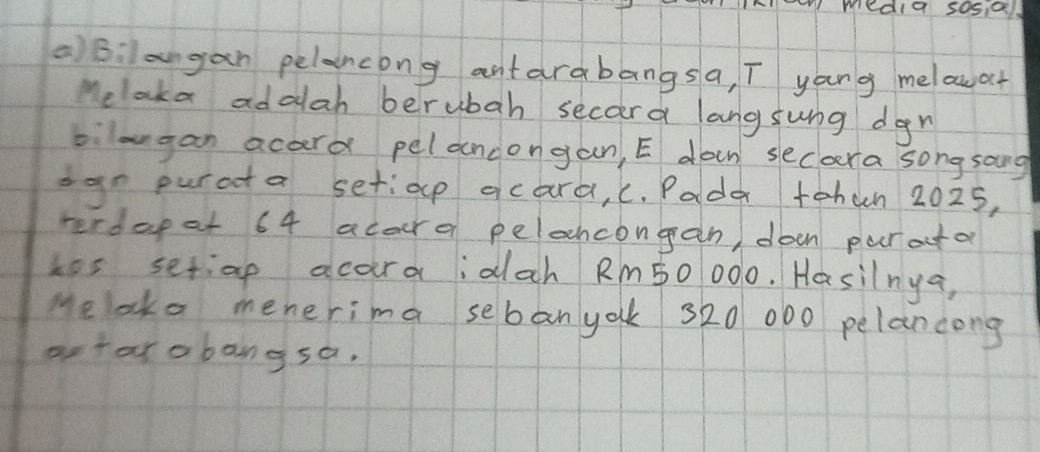 media sosial.
a) Bilangan pelancong antarabangsa, T yang melawat
Melaka adalah berubah secara langsung dgn
bilangan acara pelancongan, E dan secara songsang
dgn purata setiap acara, C. Pada tahun 2025,
terdapat 64 acara pelancongan, dan purata
kos setiap acara ialah RM50 000. Hasilnya,
Melaka menerima sebanyak 320 000 pelancong
antarabangsa.